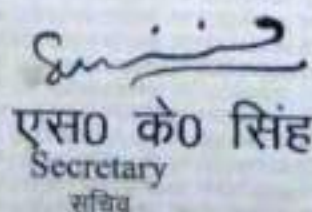 एस0 के0 सिंह
Secretary
सचिव